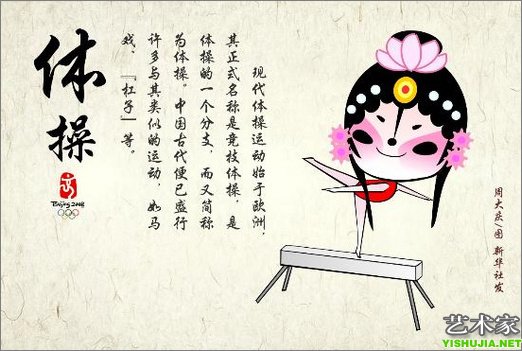 体操
Beijing 2008
现代体操运动始于欧洲，
其正式名称是竞技体操，是
体操的一个分支，而又简称
为体操。中国古代便已盛行
许多与其类似的运动，如马
戏、『杠子』等。
周大庆/图 新华社发
艺术家
YISHUJIA.NET